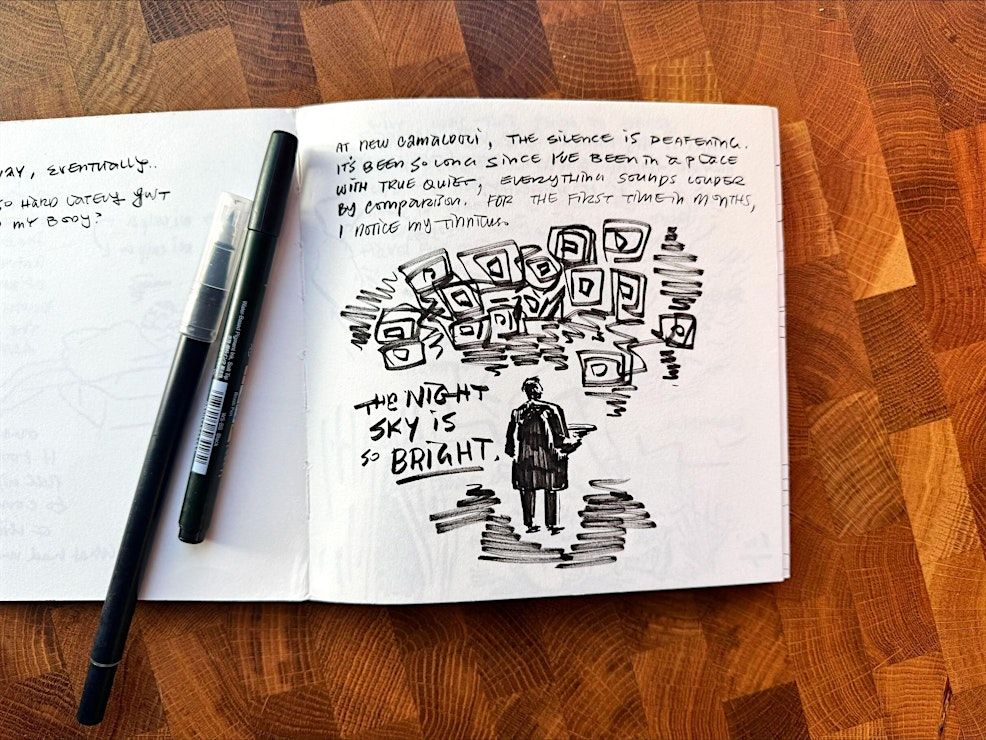 WAY, EVENTUALLY..
SO HARD LATELY JUST
MY BODY?
AT NEW CAMALDOLI, THE SILENCE IS DEAFENING.
IT'S BEEN SO LONG SINCE I'VE BEEN IN A PLACE
WITH TRUE QUIET, EVERYTHING SOUNDS LOUDER
BY COMPARISON. FOR THE FIRST TIME IN MONTHS,
I NOTICE MY TINNITUS.
THE NIGHT
SKY IS
SO BRIGHT.
Water-Based Pigment Ink, Soft Tip